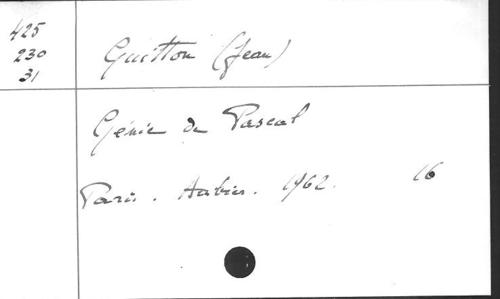 425
230
31
Guitton (Jean)
Génie de Pascal
Paris. Aubier. 1962. 16